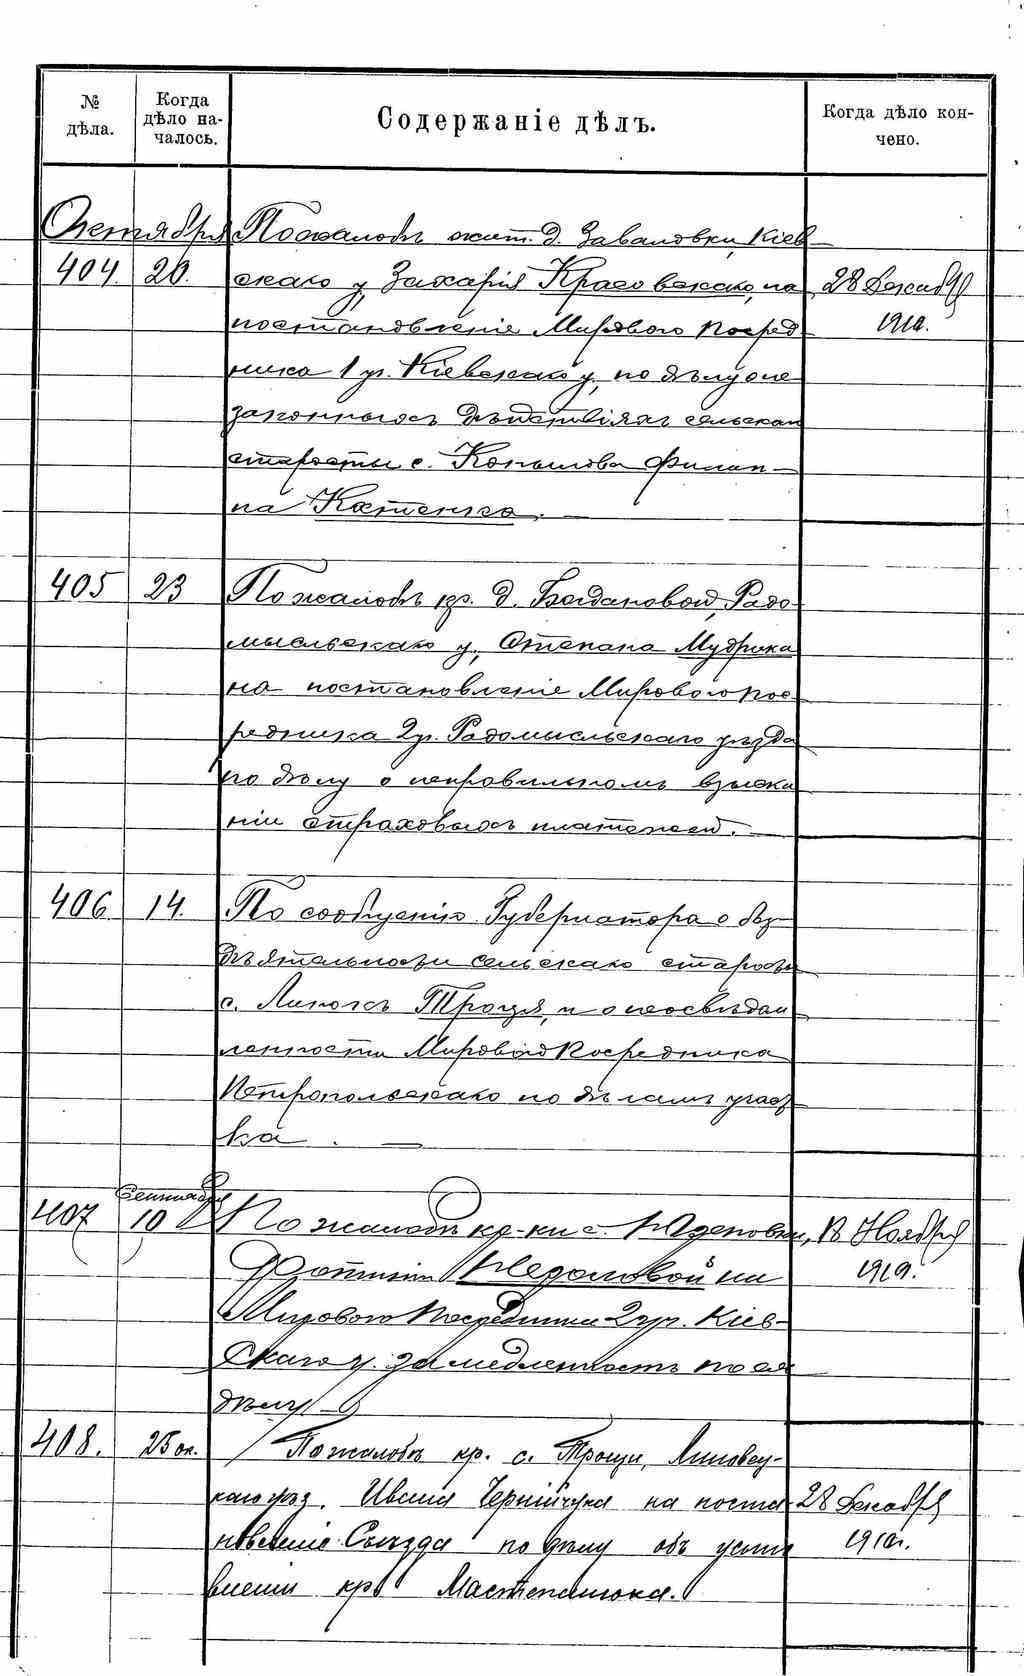 № дѣла.
Когда дѣло началось.
Содержаніе дѣлъ.
Когда дѣло кончено.
Октября
По жалобѣ жит. д. Заваловки, Кіев-
404. 20. скаго у, Захарія Красовскаго, на 28 Декабр
постановленіе Мирового Посред- 1910.
ника 1 уч. Кіевскаго у, по дѣлу о не
законныхъ дѣйствіяхъ сельскаго
старосты с. Копылова Филип-
па Костенка.
405 23 По жалобѣ кр. д. Богдановой, Радо-
мысльскаго у, Степана Мудрика
на постановленіе Мирового Пос-
редника 2 уч. Радомысльскаго уѣзда
по дѣлу о неправильномъ взыска
ніи страховыхъ платежей.
406. 14. По сообщенію Губернатора о без-
дѣятельности сельскаго старосты
с. Липокъ Троца, и о неосвѣдом
ленности Мирового Посредника
Петропольскаго по дѣламъ участ
ка.
Сентября
407 10 По жалобѣ кр-ки с. Юзеповки, 18 Ноября
Фотиніи на 1910.
Мирового Посредника 2 уч. Кіев-
скаго у. за медленность по ея
дѣлу
408. 25 ок. По жалобѣ кр. с. Трощи, Липовец-
каго уѣз. Ивана Чернійчука на поста- 28 Декабря
новленіе Съѣзда по дѣлу объ усыно 1910г.
вленіи кр. Мастепанюка.